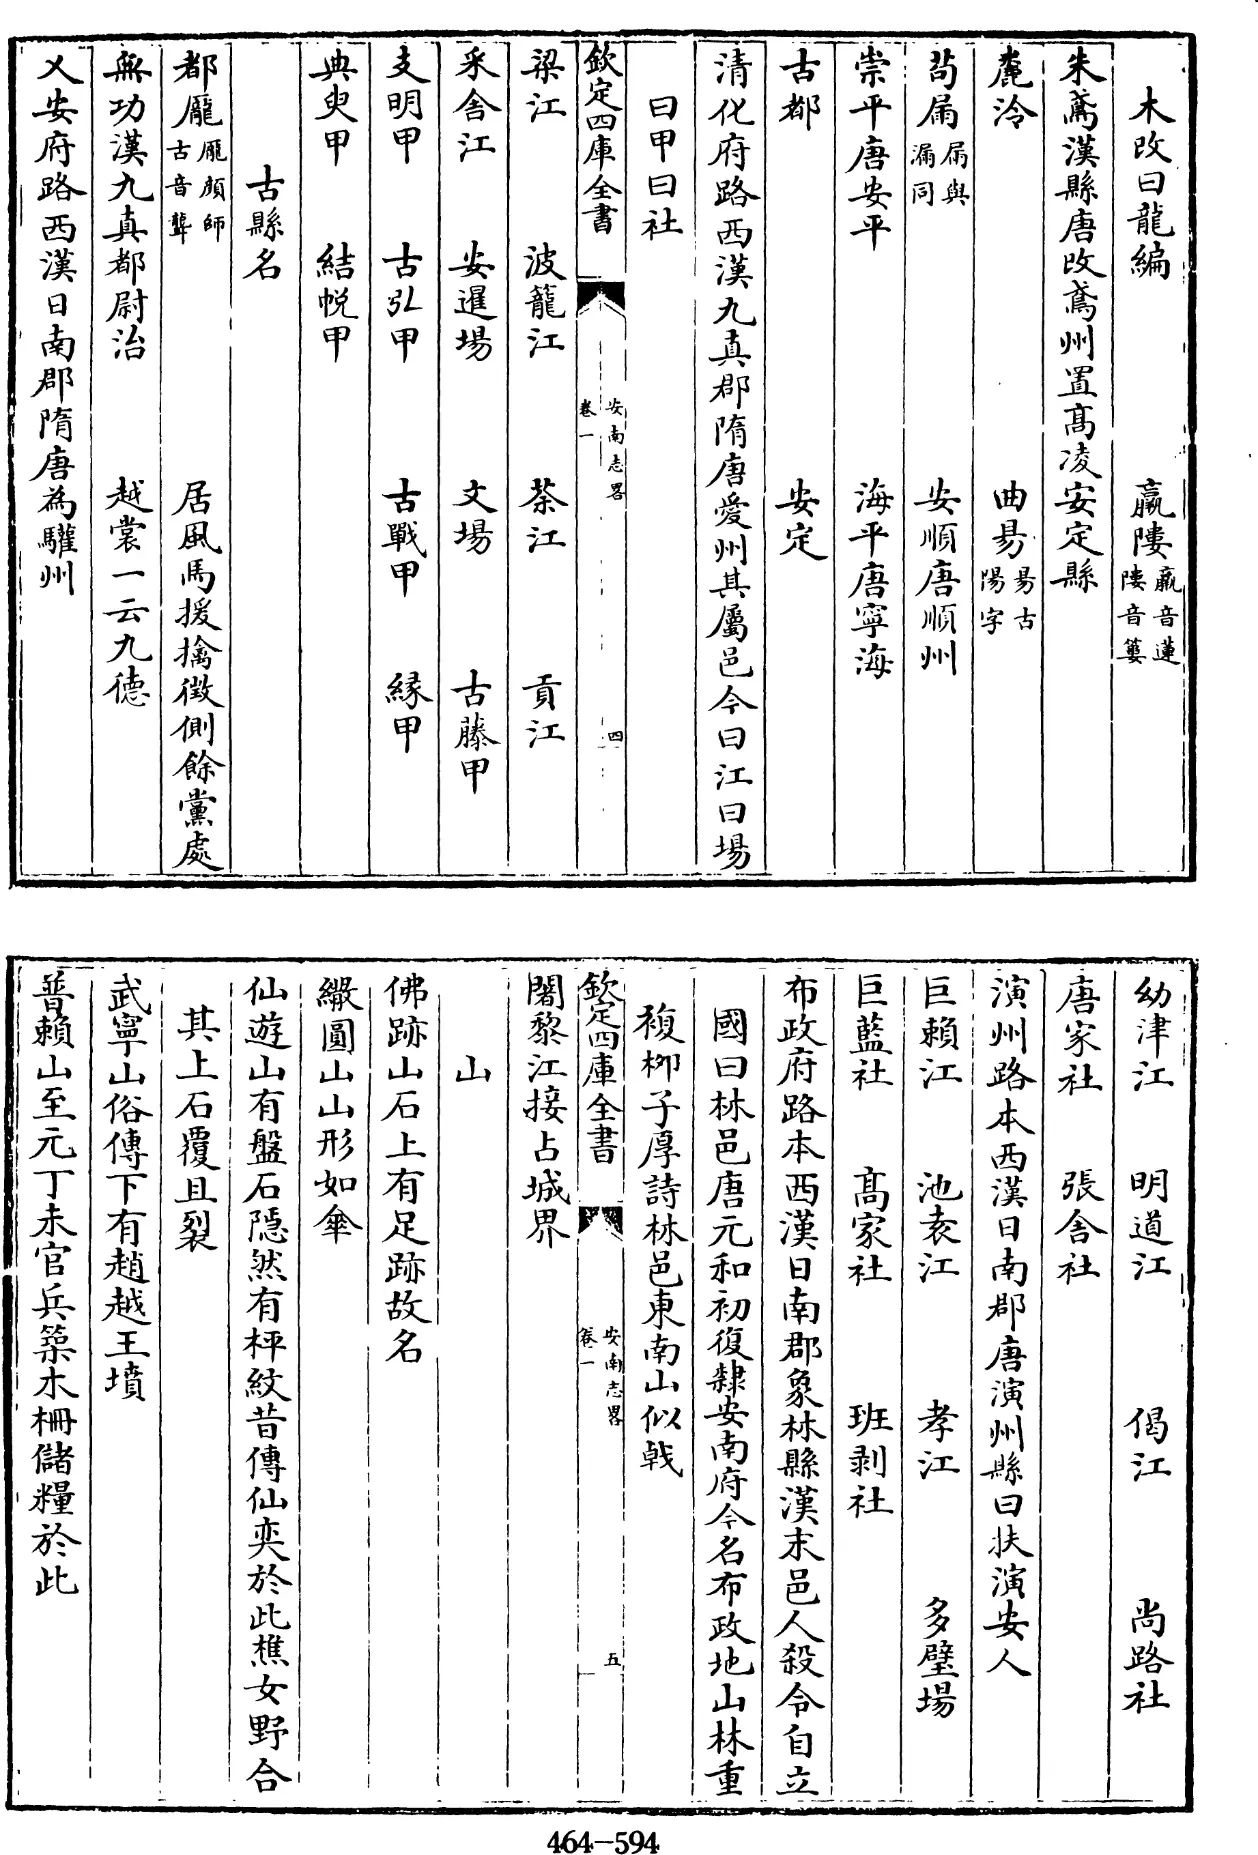 木改曰龍編　　羸𨻻羸音蓮𨻻音簍
朱鳶漢縣唐改鳶州置髙凌安定縣
麊泠　　曲昜昜古陽字
茍屚屚與漏同　　安順唐順州
崇平唐安平　　海平唐寧海
古都　　安定
清化府路西漢九真郡隋唐愛州其屬邑今曰江曰場
曰甲曰社
欽定四庫全書　　安南志畧　卷一　　四
梁江　　波龍江　　茶江　　貢江
釆舍江　　安暹場　　文場　　古藤甲
支明甲　　古弘甲　　古戰甲　　緣甲
典叟甲　　結帨甲
古縣名
都龎龎顔師古音聾　　居風馬援擒徴側餘黨處
無功漢九真都尉治　　越裳一云九德
乂安府路西漢日南郡隋唐為驩州
幼津江　　明道江　　偈江　　尚路社
唐家社　　張舍社
演州路本西漢日南郡唐演州縣曰扶演安人
巨賴江　　池袁江　　孝江　　多璧場
巨藍社　　髙家社　　班剥社
布政府路本西漢日南郡象林縣漢末邑人殺令自立
國曰林邑唐元和初復隸安南府今名布政地山林重
複栁子厚詩林邑東南山似㦸
欽定四庫全書　　安南志畧　卷一　　五
闍黎江接占城界
山
佛跡山石上有足跡故名
繖圓山山形如傘
仙遊山有盤石隠然有枰紋昔傳仙奕於此樵女野合
其上石覆且裂
武寧山俗傳下有趙越王墳
普賴山至元丁未官兵築木柵儲糧於此
464-594